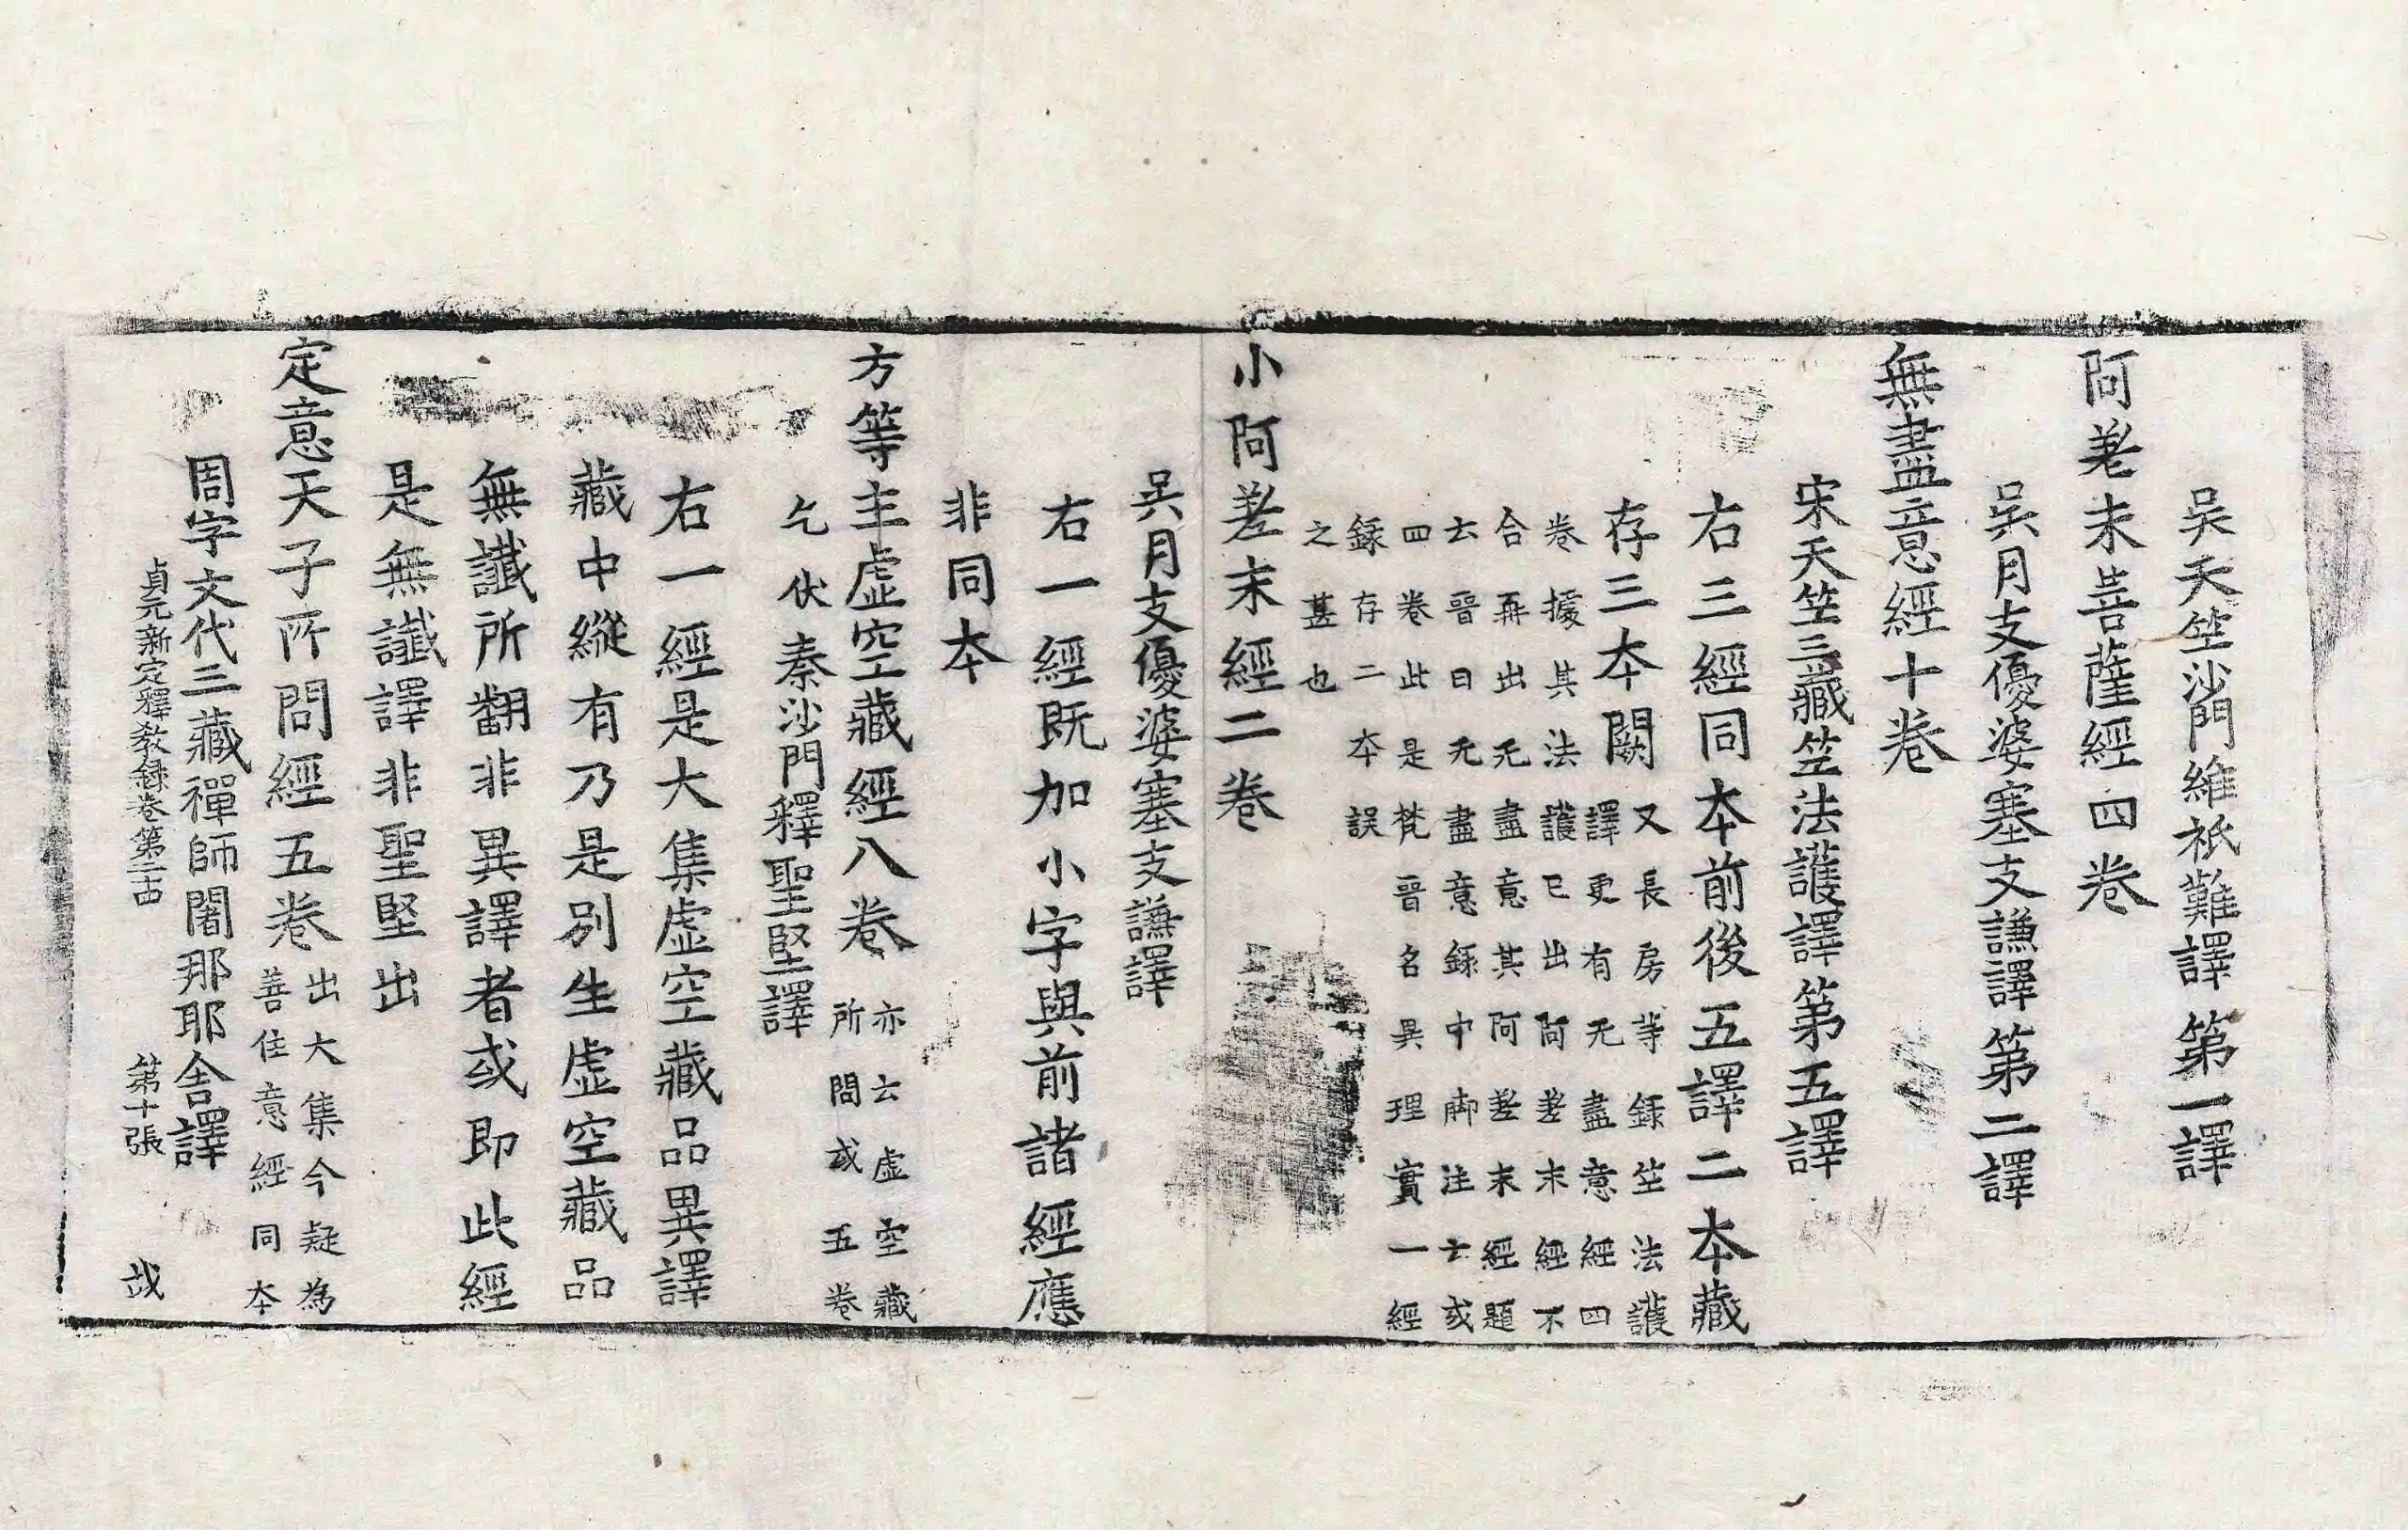 吴天竺沙門維祇難譯第一譯
阿差末菩薩經四卷
吴月支優婆塞支謙譯第二譯
無盡意經十卷
宋天竺三藏竺法護譯第五譯
右三經同本前後五譯二本藏
存三本闕
又長房等録竺法護
譯更有无盡意經四
卷據其法護已出阿差末經不
合再出无盡意其阿差末經題
云晉曰无盡意録中脚注云或
四卷此是梵晉名異理實一經
録存二本誤
之甚也
小阿差末經二卷
吴月支優婆塞支謙譯
右一經既加小字與前諸經應
非同本
方等主虚空藏經八卷
亦云虚空藏
所問或五卷
乞伏秦沙門釋聖堅譯
右一經是大集虚空藏品異譯
藏中縱有乃是別生虚空藏品
無讖所翻非異譯者或即此經
是無讖譯非聖堅出
定意天子所問經五卷
出大集今疑為
善住意經同本
周宇文代三藏禪師闍那耶舍譯
貞元新定釋教録卷第二十四 第十張 哉